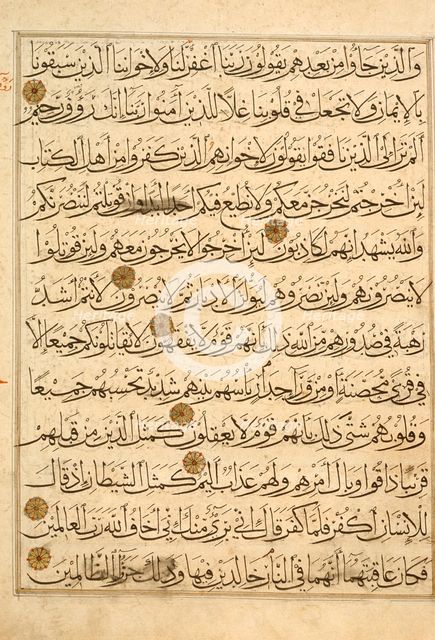 والذين جاؤا من بعدهم يقولون ربنا اغفر لنا ولإخواننا الذين سبقونا
بالإيمان ولا تجعل في قلوبنا غلا للذين آمنوا ربنا إنك رؤوف رحيم
ألم تر إلى الذين نافقوا يقولون لإخوانهم الذين كفروا من أهل الكتاب
لئن أخرجتم لنخرجن معكم ولا نطيع فيكم أحدا أبدا وإن قوتلتم لننصرنكم
والله يشهد إنهم لكاذبون لئن أخرجوا لا يخرجون معهم ولئن قوتلوا
لا ينصرونهم ولئن نصروهم ليولن الأدبار ثم لا ينصرون لأنتم أشد
رهبة في صدورهم من الله ذلك بأنهم قوم لا يفقهون لا يقاتلونكم جميعا إلا
في قرى محصنة أو من وراء جدر بأسهم بينهم شديد تحسبهم جميعا
وقلوبهم شتى ذلك بأنهم قوم لا يعقلون كمثل الذين من قبلهم
قريبا ذاقوا وبال أمرهم ولهم عذاب أليم كمثل الشيطان إذ قال
للإنسان اكفر فلما كفر قال إني بريء منك إني أخاف الله رب العالمين
فكان عاقبتهما أنهما في النار خالدين فيها وذلك جزاء الظالمين
Heritage
Heritage
Heritage